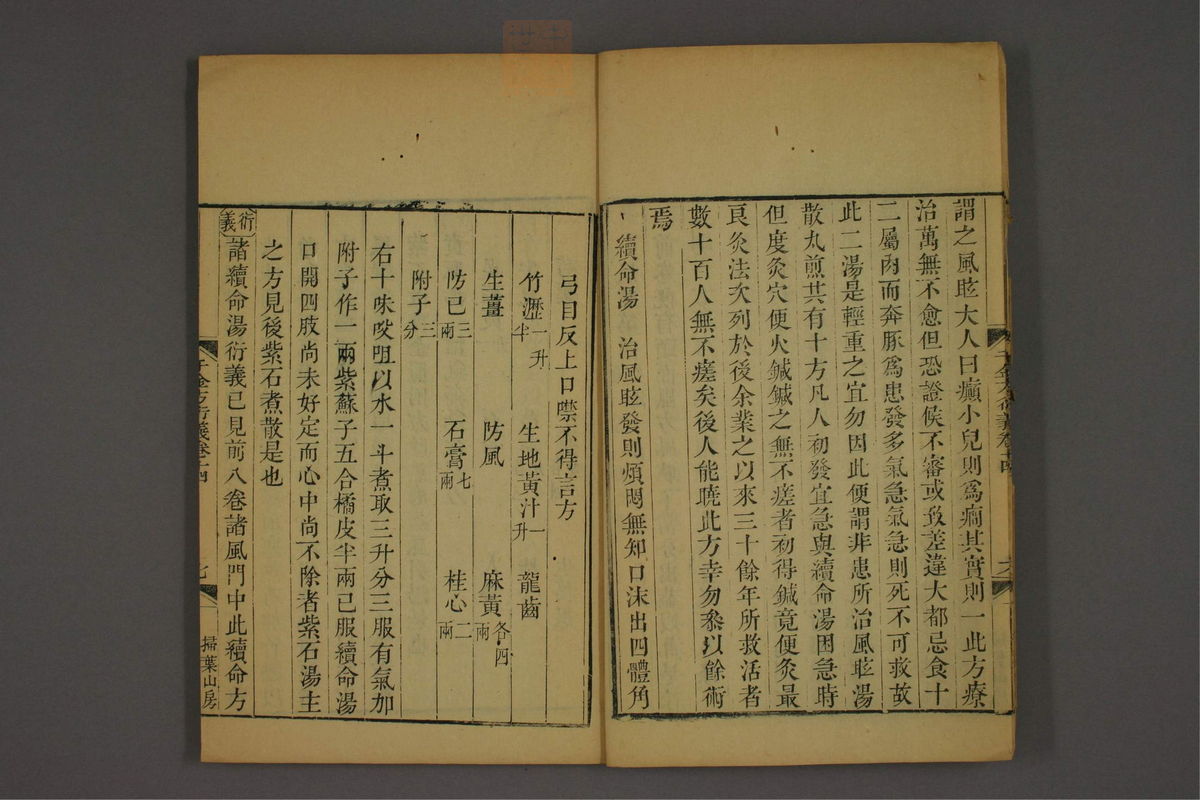 謂之風眩大人曰癲小兒則爲癇其實則一此方療
治萬無不愈但恐證候不審或致差違大都忌食十
二屬肉而奔豚爲患發多氣急氣急則死不可救故
此二湯是輕重之宜勿因此便謂非患所治風眩湯
散丸煎共有十方凡人初發宜急與續命湯困急時
但度灸穴便火鍼鍼之無不瘥者初得鍼竟便灸最
良灸法次列於後余業之以來三十餘年所救活者
數十百人無不瘥矣後人能曉此方幸勿叅以餘術
焉
續命湯　治風眩發則煩悶無知口沫出四體角
弓目反上口噤不得言方
竹瀝一升半　生地黃汁一升　龍齒
生薑　防風　麻黃各四兩
防已三兩　石膏七兩　桂心二兩
附子三分
右十味㕮咀以水一斗煮取三升分三服有氣加
附子作一兩紫蘇子五合橘皮半兩已服續命湯
口開四肢尚未好定而心中尚不除者紫石湯主
之方見後紫石煮散是也
衍義　諸續命湯衍義已見前八卷諸風門中此續命方
千金方衍義卷十四　七　掃葉山房